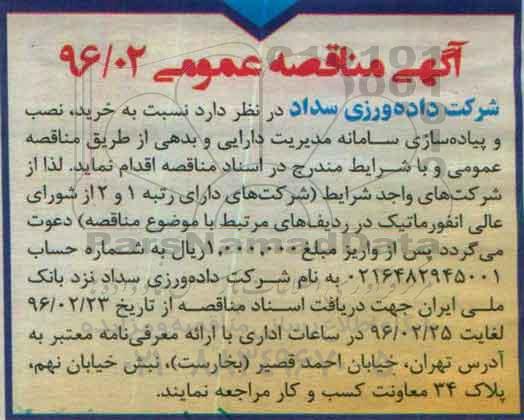 آگهی مناقصه عمومی ۹۶/۰۲
شرکت داده‌ورزی سداد در نظر دارد نسبت به خرید، نصب
و پیاده‌سازی سامانه مدیریت دارایی و بدهی از طریق مناقصه
عمومی و با شرایط مندرج در اسناد مناقصه اقدام نماید. لذا از
شرکت‌های واجد شرایط (شرکت‌های دارای رتبه ۱ و ۲ از شورای
عالی انفورماتیک در ردیف‌های مرتبط با موضوع مناقصه) دعوت
می‌گردد پس از واریز مبلغ ۱,۰۰۰,۰۰۰ ریال به شماره حساب
۰۲۱۶۴۸۲۹۴۵۰۰۱ به نام شرکت داده‌ورزی سداد نزد بانک
ملی ایران جهت دریافت اسناد مناقصه از تاریخ ۹۶/۰۲/۲۳
لغایت ۹۶/۰۲/۲۵ در ساعات اداری با ارائه معرفی‌نامه معتبر به
آدرس تهران، خیابان احمد قصیر (بخارست)، نبش خیابان نهم،
پلاک ۳۴ معاونت کسب و کار مراجعه نمایند.
ParsNamadData